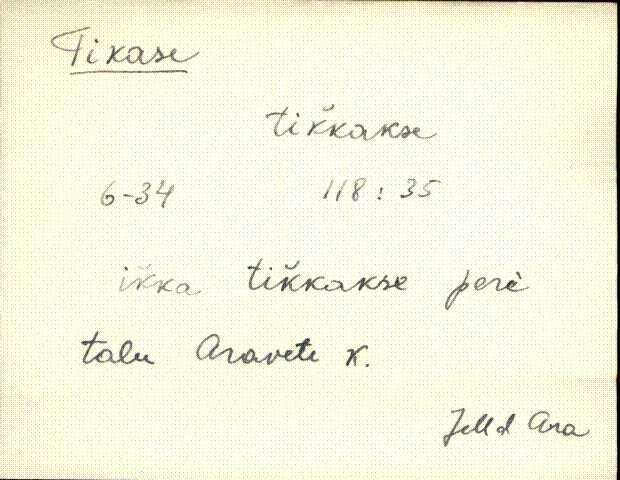 Tikase
tik̆kakse
6-34 118:35
ik̆ka tik̆kakse perè
talu Aravete k.
JMd Ara